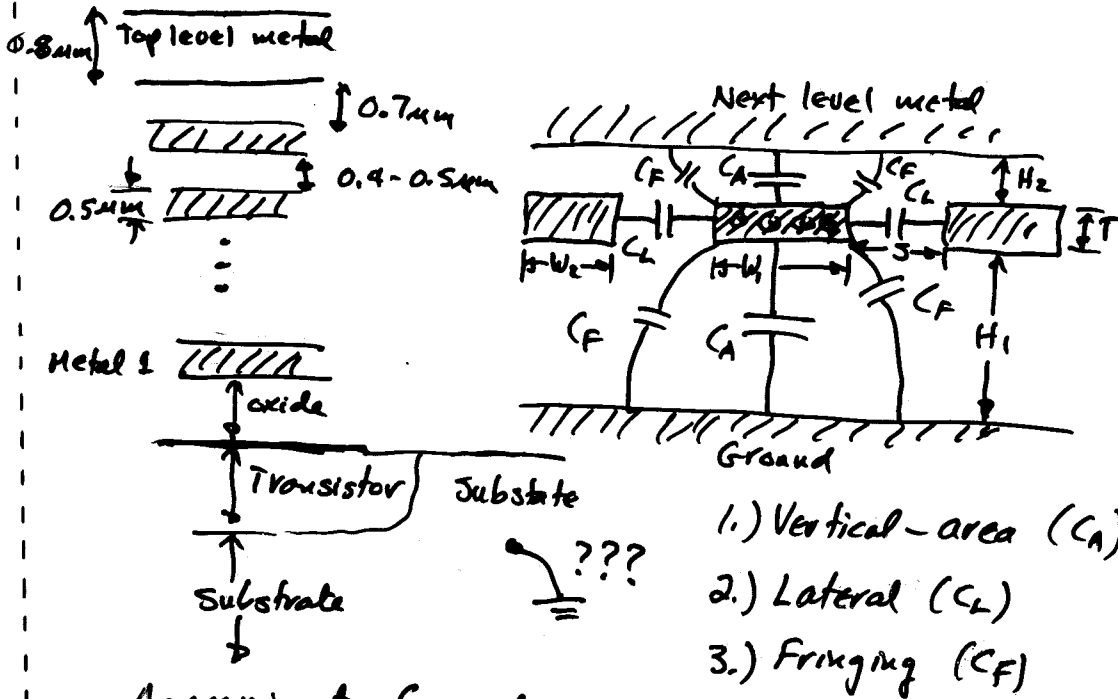 0.8µm
Top level metal
0.7µm
0.4-0.5µm
0.5µm
Metal 1
oxide
Transistor
Substate
Substrate
???
Next level metal
CF
CA
CF
CL
H2
T
CL
W2
W1
S
CF
CA
CF
H1
Ground
1.) Vertical-area (CA)
2.) Lateral (CL)
3.) Fringing (CF)